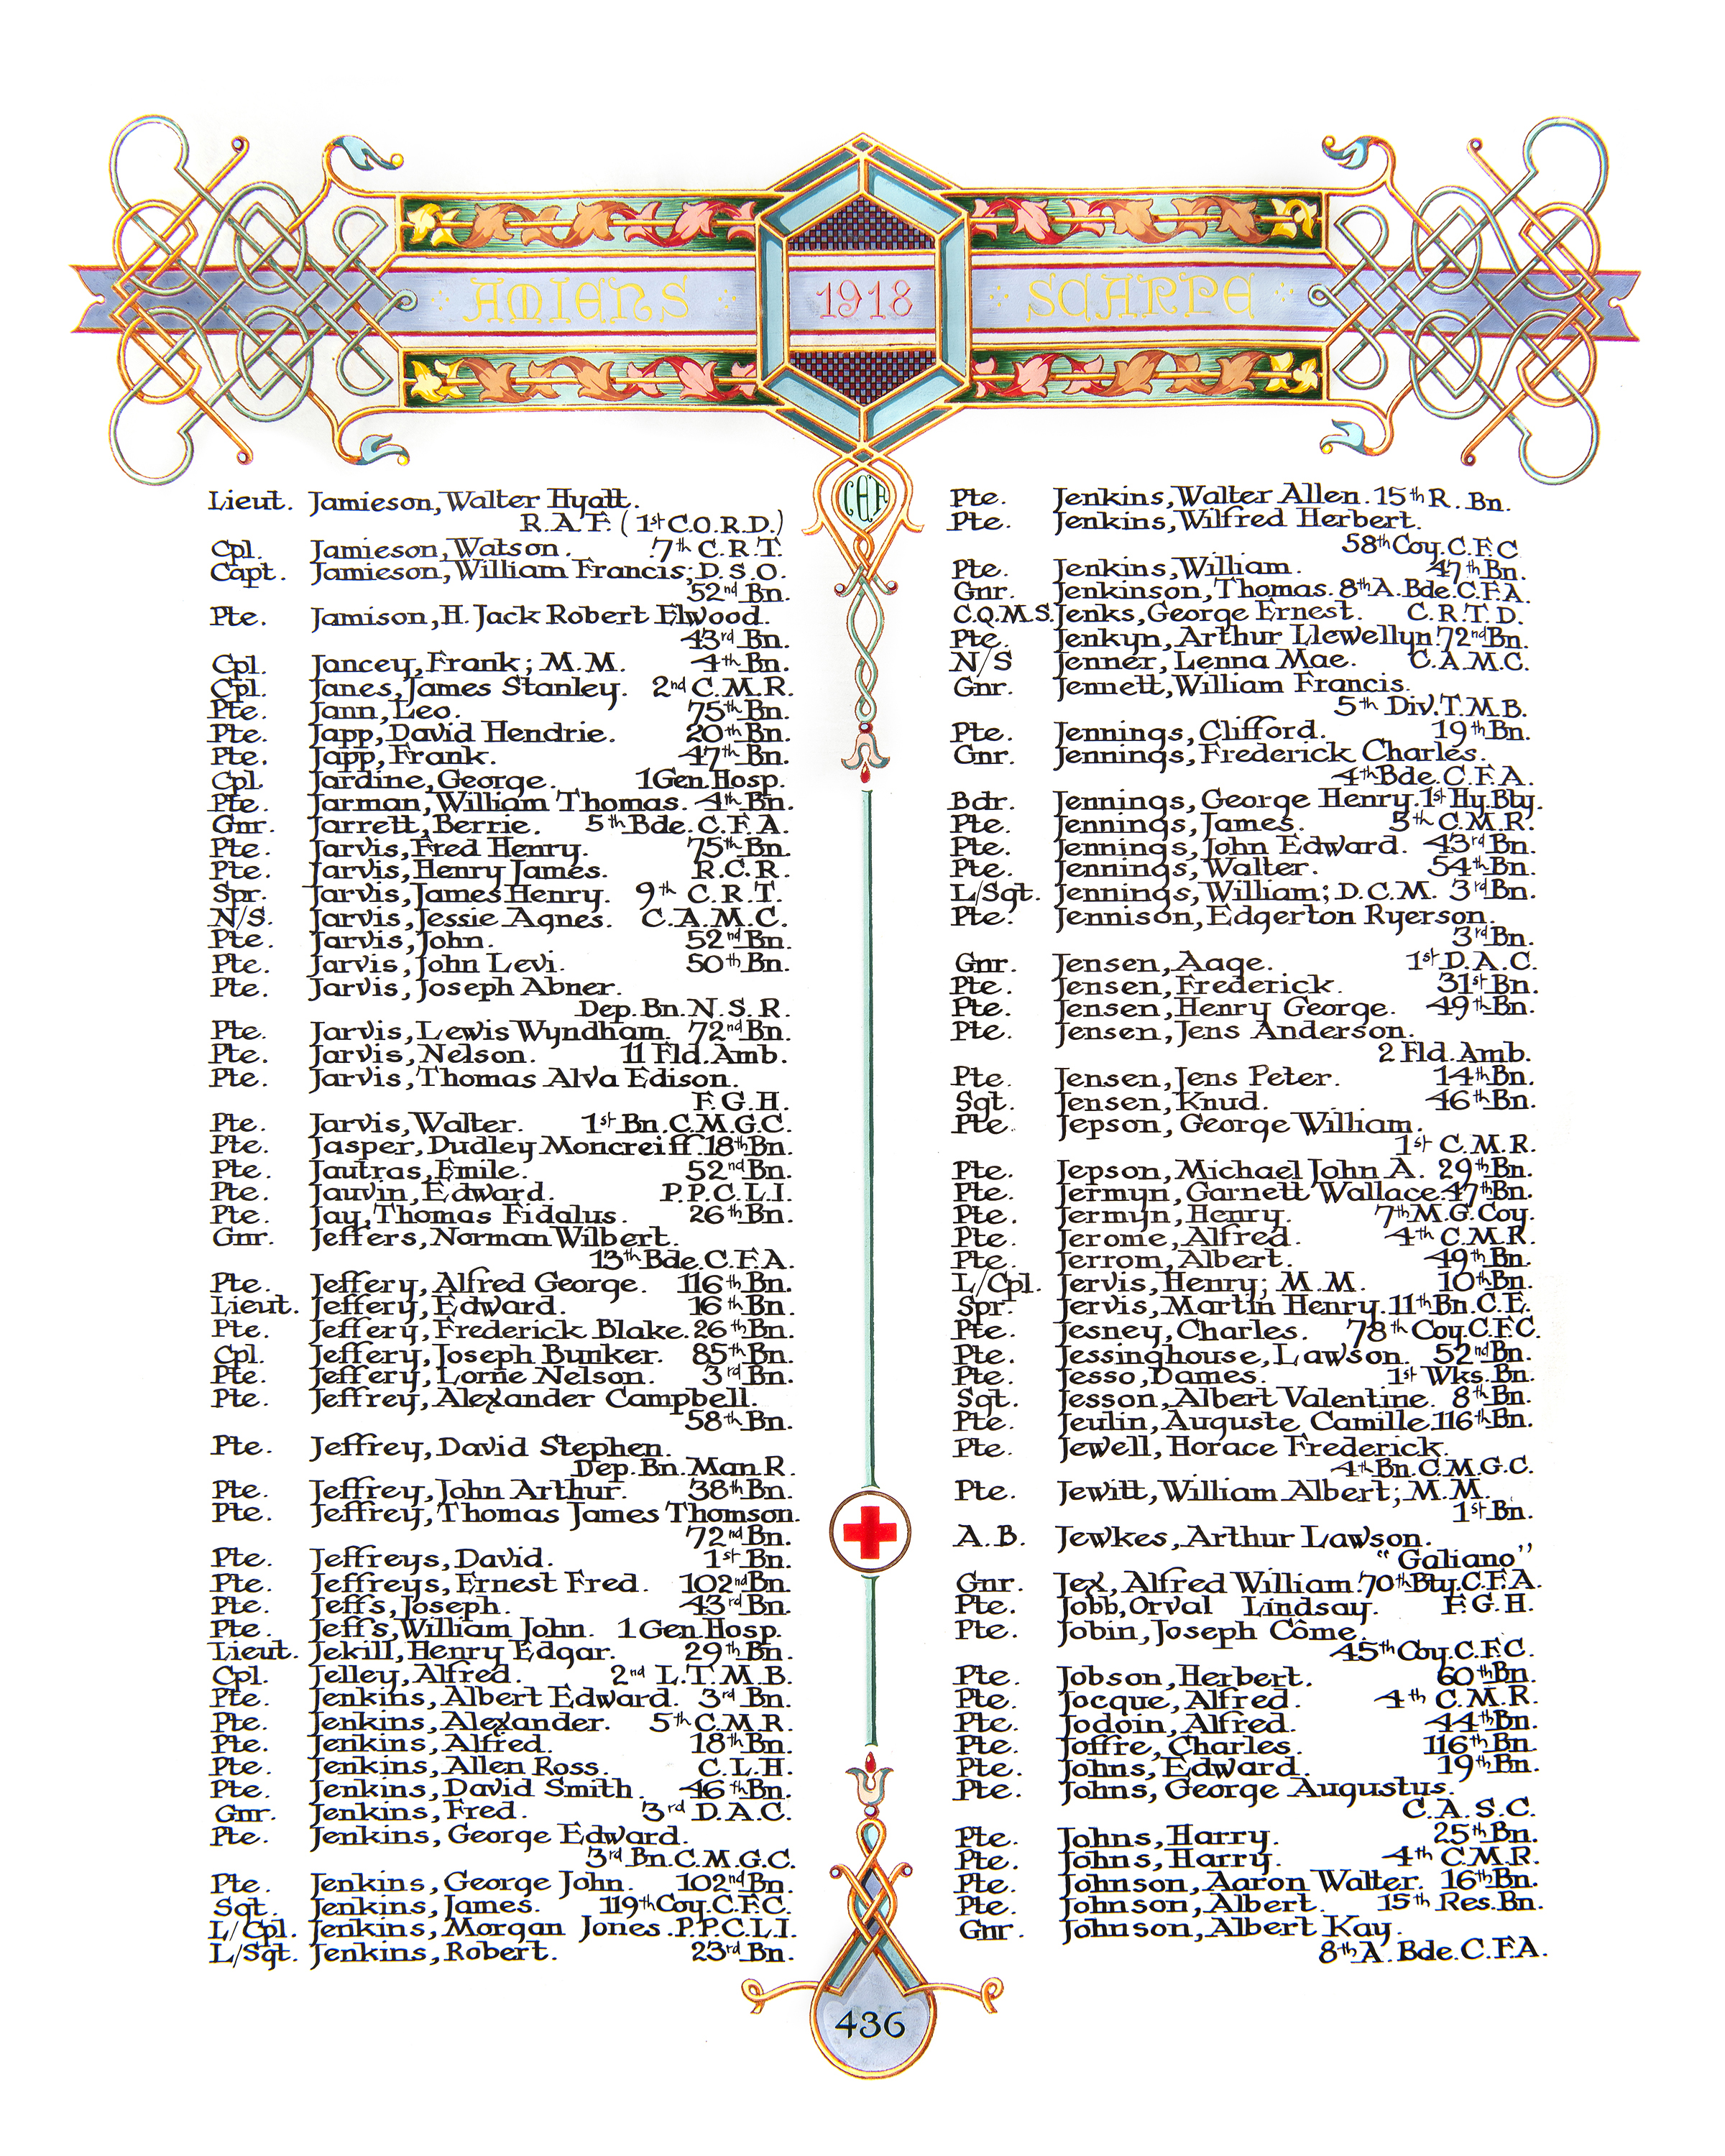 AMIENS 1918 SCARPE
CEF
Lieut. Jamieson, Walter Hyatt.
R.A.F. (1st C.O.R.D.)
Cpl. Jamieson, Watson. 7th C.R.T.
Capt. Jamieson, William Francis; D.S.O.
52nd Bn.
Pte. Jamison, H. Jack Robert Elwood.
43rd Bn.
Cpl. Jancey, Frank; M.M. 4th Bn.
Cpl. Janes, James Stanley. 2nd C.M.R.
Pte. Jann, Leo. 75th Bn.
Pte. Japp, David Hendrie. 20th Bn.
Pte. Japp, Frank. 47th Bn.
Cpl. Jardine, George. 1 Gen. Hosp.
Pte. Jarman, William Thomas. 4th Bn.
Gnr. Jarrett, Berrie. 5th Bde. C.F.A.
Pte. Jarvis, Fred Henry. 75th Bn.
Pte. Jarvis, Henry James. R.C.R.
Spr. Jarvis, James Henry. 9th C.R.T.
N/S. Jarvis, Jessie Agnes. C.A.M.C.
Pte. Jarvis, John. 52nd Bn.
Pte. Jarvis, John Levi. 50th Bn.
Pte. Jarvis, Joseph Abner.
Dep. Bn. N.S.R.
Pte. Jarvis, Lewis Wyndham. 72nd Bn.
Pte. Jarvis, Nelson. 11 Fld. Amb.
Pte. Jarvis, Thomas Alva Edison.
F.G.H.
Pte. Jarvis, Walter. 1st Bn. C.M.G.C.
Pte. Jasper, Dudley Moncreiff. 18th Bn.
Pte. Jautras, Emile. 52nd Bn.
Pte. Jauvin, Edward. P.P.C.L.I.
Pte. Jay, Thomas Fidalus. 26th Bn.
Gnr. Jeffers, Norman Wilbert.
13th Bde. C.F.A.
Pte. Jeffery, Alfred George. 116th Bn.
Lieut. Jeffery, Edward. 16th Bn.
Pte. Jeffery, Frederick Blake. 26th Bn.
Cpl. Jeffery, Joseph Bunker. 85th Bn.
Pte. Jeffery, Lorne Nelson. 3rd Bn.
Pte. Jeffrey, Alexander Campbell.
58th Bn.
Pte. Jeffrey, David Stephen.
Dep. Bn. Man. R.
Pte. Jeffrey, John Arthur. 38th Bn.
Pte. Jeffrey, Thomas James Thomson.
72nd Bn.
Pte. Jeffreys, David. 1st Bn.
Pte. Jeffreys, Ernest Fred. 102nd Bn.
Pte. Jeffs, Joseph. 43rd Bn.
Pte. Jeffs, William John. 1 Gen. Hosp.
Lieut. Jekill, Henry Edgar. 29th Bn.
Cpl. Jelley, Alfred. 2nd L.T.M.B.
Pte. Jenkins, Albert Edward. 3rd Bn.
Pte. Jenkins, Alexander. 5th C.M.R.
Pte. Jenkins, Alfred. 18th Bn.
Pte. Jenkins, Allen Ross. C.L.H.
Pte. Jenkins, David Smith. 46th Bn.
Gnr. Jenkins, Fred. 3rd D.A.C.
Pte. Jenkins, George Edward.
3rd Bn. C.M.G.C.
Pte. Jenkins, George John. 102nd Bn.
Sgt. Jenkins, James. 119th Coy. C.F.C.
L/Cpl. Jenkins, Morgan Jones. P.P.C.L.I.
L/Sgt. Jenkins, Robert. 23rd Bn.
Pte. Jenkins, Walter Allen. 15th R. Bn.
Pte. Jenkins, Wilfred Herbert.
58th Coy. C.F.C
Pte. Jenkins, William. 47th Bn.
Gnr. Jenkinson, Thomas. 8th A. Bde. C.F.A.
C.Q.M.S. Jenks, George Ernest. C.R.T.D.
Pte. Jenkyn, Arthur Llewellyn 72nd Bn.
N/S Jenner, Lenna Mae. C.A.M.C.
Gnr. Jennett, William Francis.
5th Div. T.M.B.
Pte. Jennings, Clifford. 19th Bn.
Gnr. Jennings, Frederick Charles.
4th Bde. C.F.A.
Bdr. Jennings, George Henry. 1st Hy. Bty.
Pte. Jennings, James. 5th C.M.R.
Pte. Jennings, John Edward. 43rd Bn.
Pte. Jennings, Walter. 54th Bn.
L/Sgt. Jennings, William; D.C.M. 3rd Bn.
Pte. Jennison, Edgerton Ryerson.
3rd Bn.
Gnr. Jensen, Aage. 1st D.A.C.
Pte. Jensen, Frederick. 31st Bn.
Pte. Jensen, Henry George. 49th Bn.
Pte. Jensen, Jens Anderson.
2 Fld. Amb.
Pte. Jensen, Jens Peter. 14th Bn.
Sgt. Jensen, Knud. 46th Bn.
Pte. Jepson, George William.
1st C.M.R.
Pte. Jepson, Michael John A. 29th Bn.
Pte. Jermyn, Garnett Wallace. 47th Bn.
Pte. Jermyn, Henry. 7th M.G. Coy.
Pte. Jerome, Alfred. 4th C.M.R.
Pte. Jerrom, Albert. 49th Bn.
L/Cpl. Jervis, Henry; M.M. 10th Bn.
Spr. Jervis, Martin Henry. 11th Bn. C.E.
Pte. Jesney, Charles. 78th Coy. C.F.C.
Pte. Jessinghouse, Lawson. 52nd Bn.
Pte. Jesso, Dames. 1st Wks. Bn.
Sgt. Jesson, Albert Valentine. 8th Bn.
Pte. Jeulin, Auguste Camille. 116th Bn.
Pte. Jewell, Horace Frederick.
4th Bn. C.M.G.C.
Pte. Jewitt, William Albert; M.M.
1st Bn.
A.B. Jewkes, Arthur Lawson.
"Galiano"
Gnr. Jex, Alfred William. 70th Bty. C.F.A.
Pte. Jobb, Orval Lindsay. F.G.H.
Pte. Jobin, Joseph Côme.
45th Coy. C.F.C.
Pte. Jobson, Herbert. 60th Bn.
Pte. Jocque, Alfred. 4th C.M.R.
Pte. Jodoin, Alfred. 44th Bn.
Pte. Joffre, Charles. 116th Bn.
Pte. Johns, Edward. 19th Bn.
Pte. Johns, George Augustus.
C.A.S.C.
Pte. Johns, Harry. 25th Bn.
Pte. Johns, Harry. 4th C.M.R.
Pte. Johnson, Aaron Walter. 16th Bn.
Pte. Johnson, Albert. 15th Res. Bn.
Gnr. Johnson, Albert Kay.
8th A. Bde. C.F.A.
436